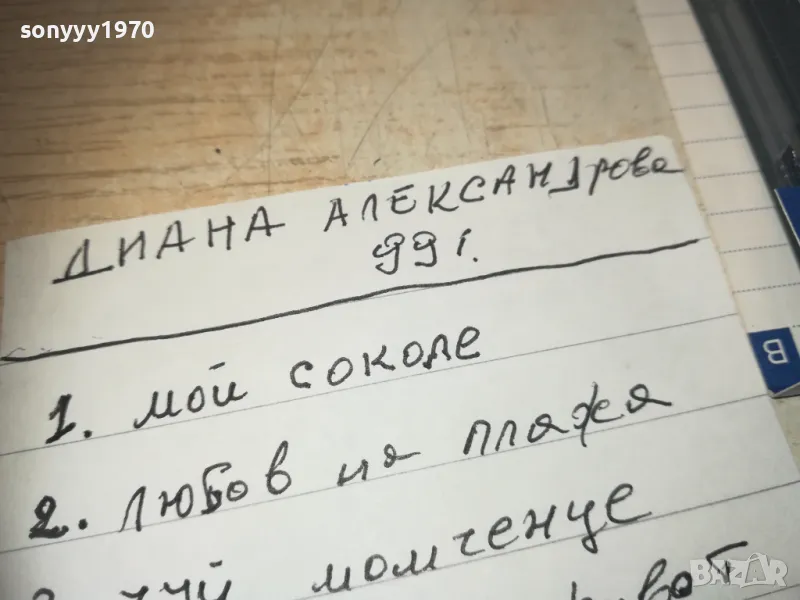 sonyyy1970
ДИАНА АЛЕКСАНДрова
99г.
1. мой соколе
2. любов на плажа
момченце
B
BAZAR